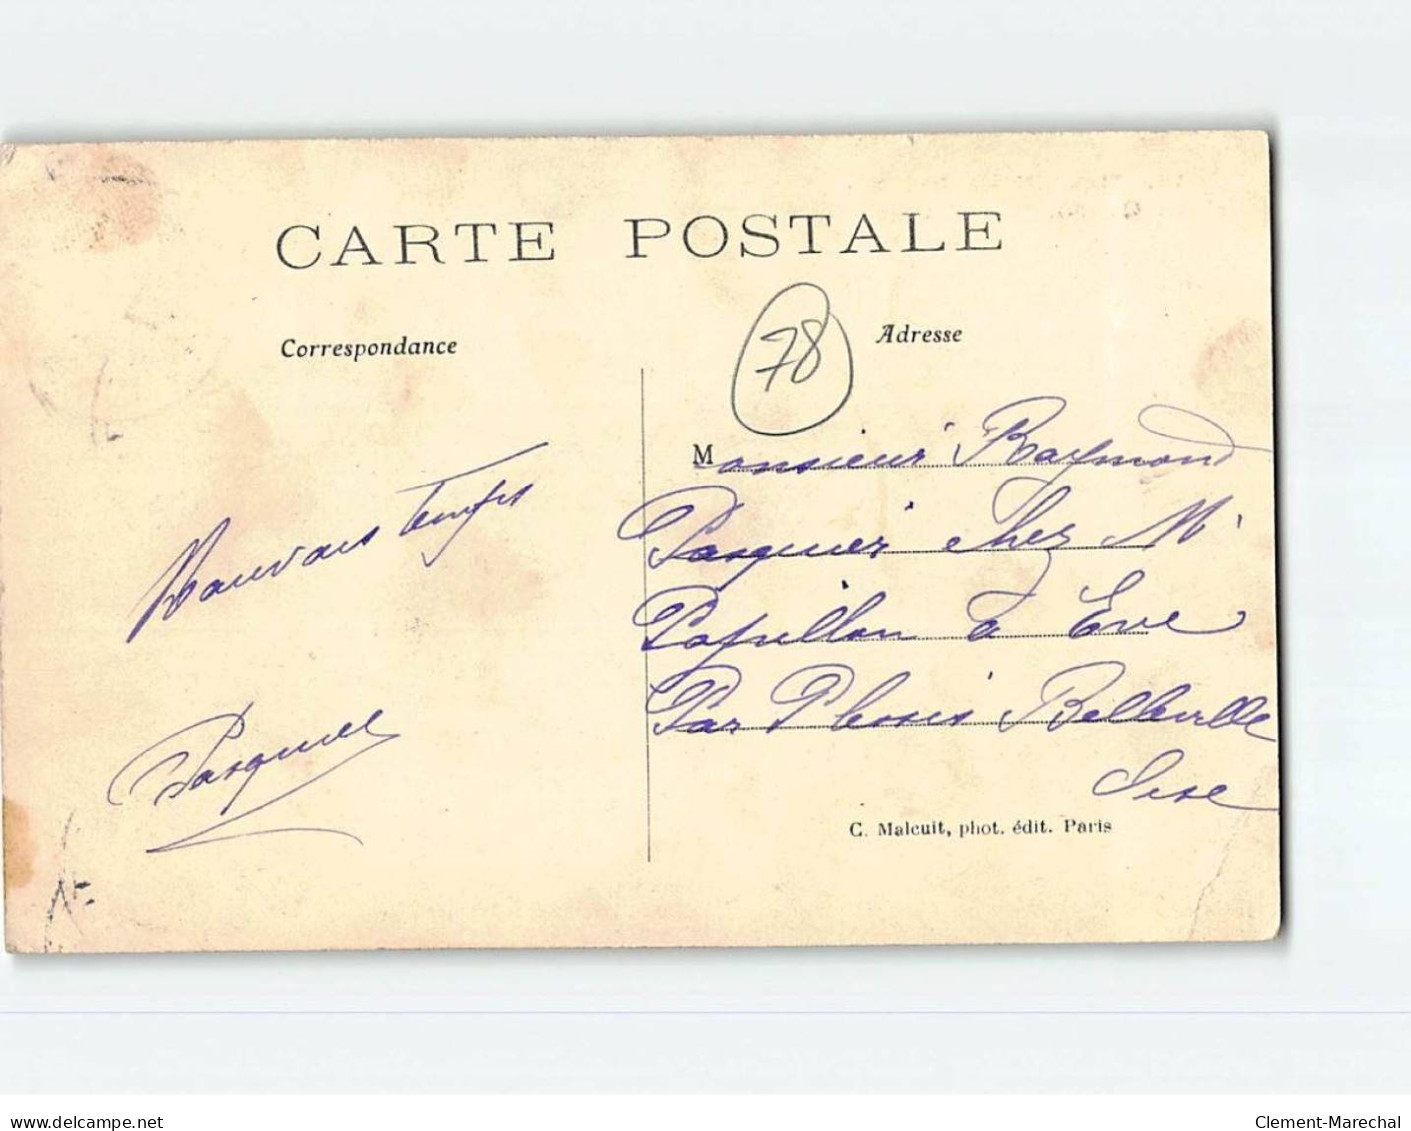 CARTE POSTALE
Correspondance
78
Adresse
Mauvais temps
Pasquier
Monsieur Raymond
Pasquier chez Mr
Papillon à Eve
Par Plessis Belleville
Oise
C. Malcuit, phot. édit. Paris
delcampe.net
Clement-Marechal